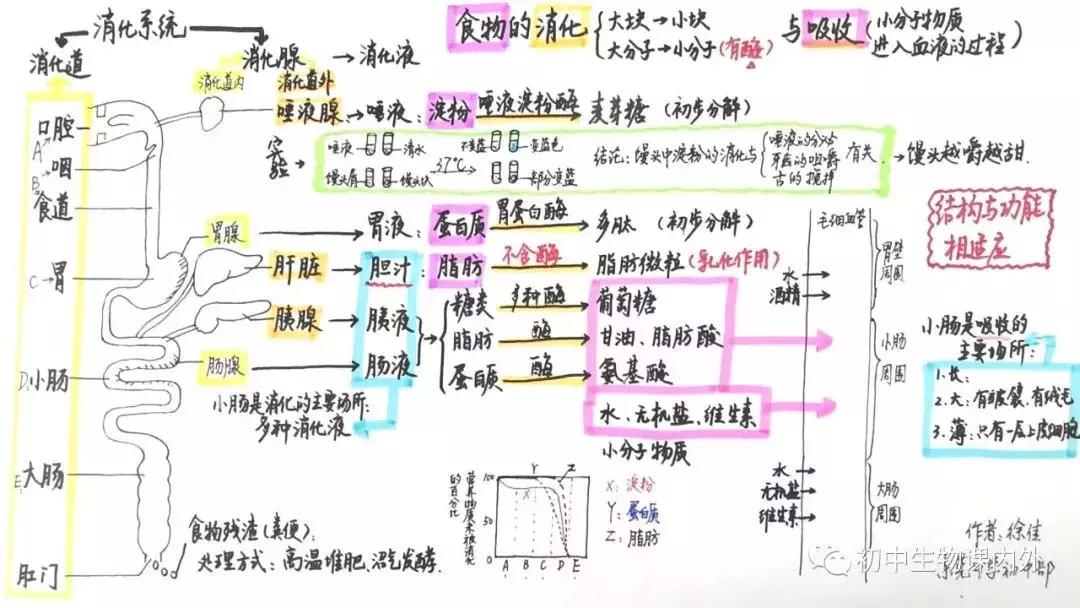 食物的消化
大块→小块
大分子→小分子(有酶)
与吸收
(小分子物质
进入血液的过程)
消化系统
消化道
消化腺→消化液
消化道内
消化道外
口腔
A
咽
B
食道
C→胃
D.小肠
E.大肠
肛门
唾液腺→唾液:淀粉 唾液淀粉酶 麦芽糖(初步分解)
实验
唾液
清水
馒头屑
馒头块
37℃
不变蓝
变蓝色
部分变蓝
结论:馒头中淀粉的消化与
唾液的分泌
牙齿的咀嚼
舌的搅拌
有关.
→馒头越嚼越甜.
胃腺→胃液:蛋白质 胃蛋白酶 多肽(初步分解)
肝脏→胆汁:脂肪 不含酶 脂肪微粒(乳化作用)
胰腺→胰液
肠腺→肠液
糖类 多种酶 葡萄糖
脂肪 酶 甘油、脂肪酸
蛋白质 酶 氨基酸
水、无机盐、维生素
小分子物质
小肠是消化的主要场所:
多种消化液
毛细血管
水
酒精
胃壁
周围
小肠
周围
水
无机盐
维生素
大肠
周围
结构与功能
相适应
小肠是吸收的
主要场所:
1.长:
2.大:有皱襞、有绒毛
3.薄:只有一层上皮细胞
食物残渣(粪便):
处理方式:高温堆肥、沼气发酵.
营养物质未被消化
的百分比
100
50
0
X
Y
Z
A B C D E
X:淀粉
Y:蛋白质
Z:脂肪
作者:徐佳
初中生物课内外